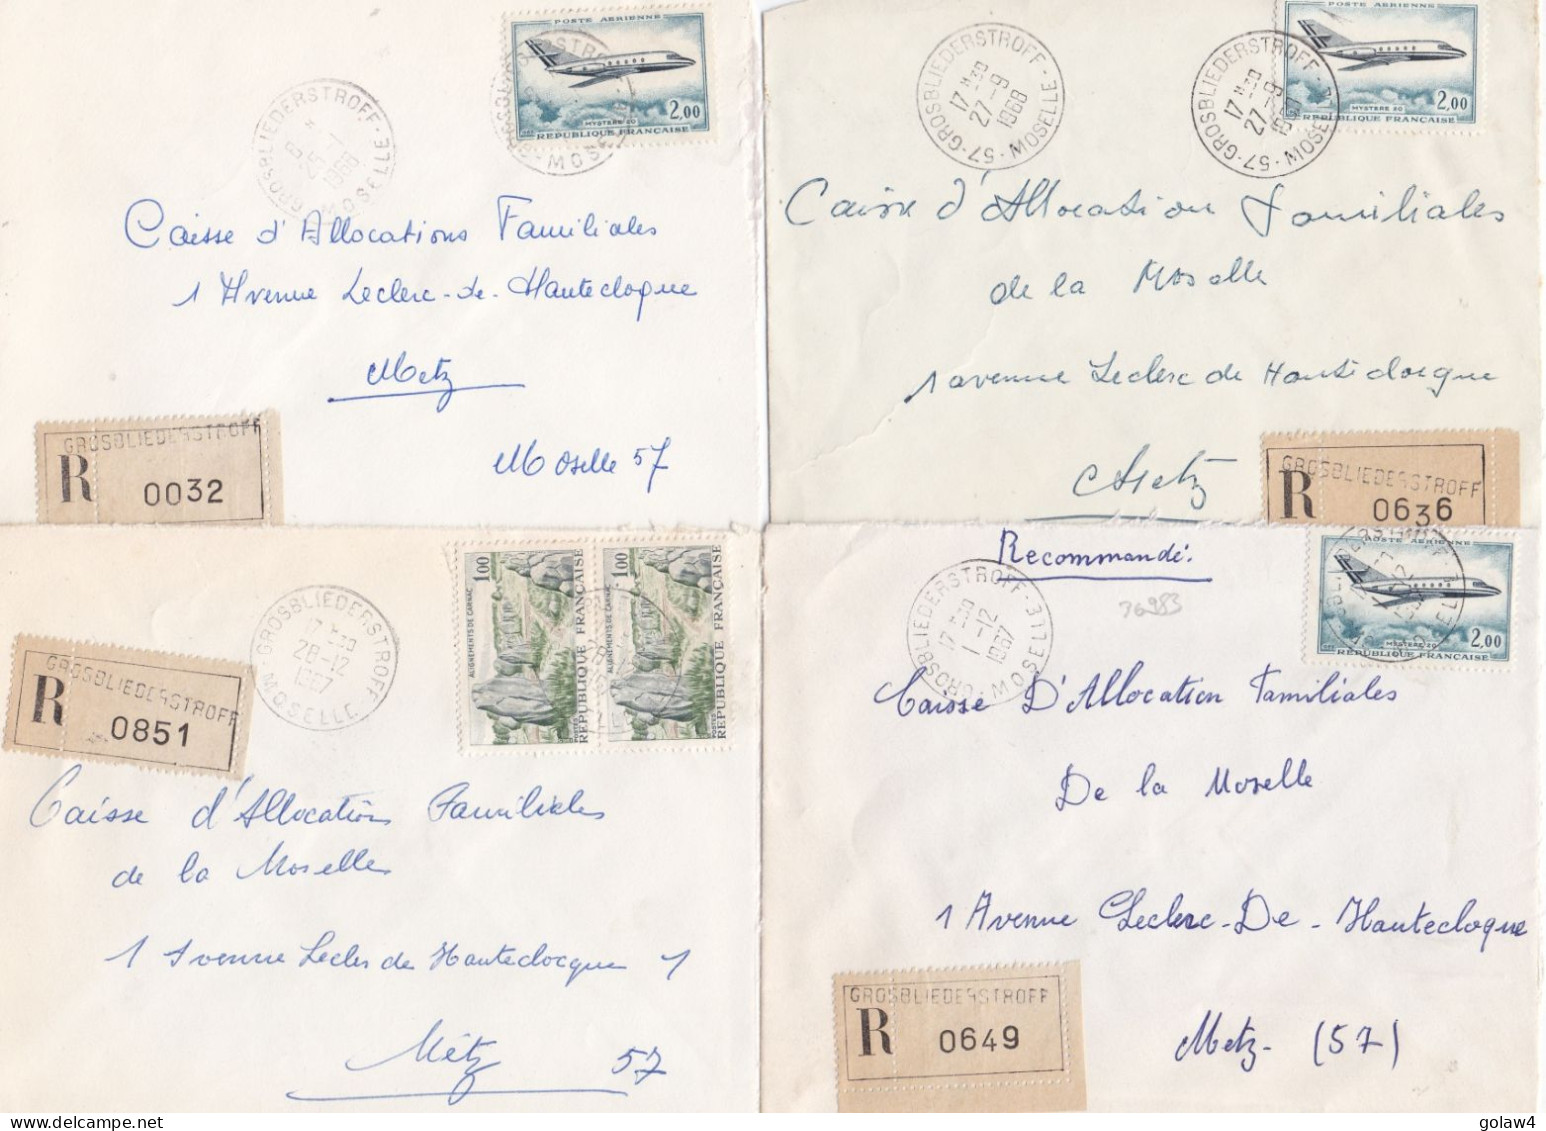 POSTE AERIENNE
MYSTERE 20
2,00
REPUBLIQUE FRANÇAISE
GROSBLIEDERSTROFF
MOSELLE
1968
Caisse d'Allocations Familiales
1 Avenue Leclerc-de-Hauteclocque
Metz
Moselle 57
GROSBLIEDERSTROFF
R 0032
57-GROSBLIEDERSTROFF-MOSELLE
17 H30
27-9
1968
57-GROSBLIEDERSTROFF-MOSELLE
17 H30
27-9
POSTE AERIENNE
MYSTERE 20
2,00
REPUBLIQUE FRANÇAISE
Caisse d'Allocation Familiales
de la Moselle
1 avenue Leclerc de Hauteclocque
Metz
GROSBLIEDERSTROFF
R 0636
GROSBLIEDERSTROFF
R 0851
GROSBLIEDERSTROFF
MOSELLE
17 H30
28-12
1967
1,00
ALIGNEMENTS DE CARNAC
POSTES
REPUBLIQUE FRANÇAISE
1,00
ALIGNEMENTS DE CARNAC
POSTES
REPUBLIQUE FRANÇAISE
Caisse d'Allocation Familiales
de la Moselle
1 Avenue Leclerc de Hauteclocque 1
Métz 57
Recommandé.
36983
GROSBLIEDERSTROFF
MOSELLE
17 H30
1-12
1967
POSTE AERIENNE
MYSTERE 20
2,00
REPUBLIQUE FRANÇAISE
Caisse D'Allocation Familiales
De la Moselle
1 Avenue Leclerc-De-Hauteclocque
Metz- (57)
GROSBLIEDERSTROFF
R 0649
golaw4